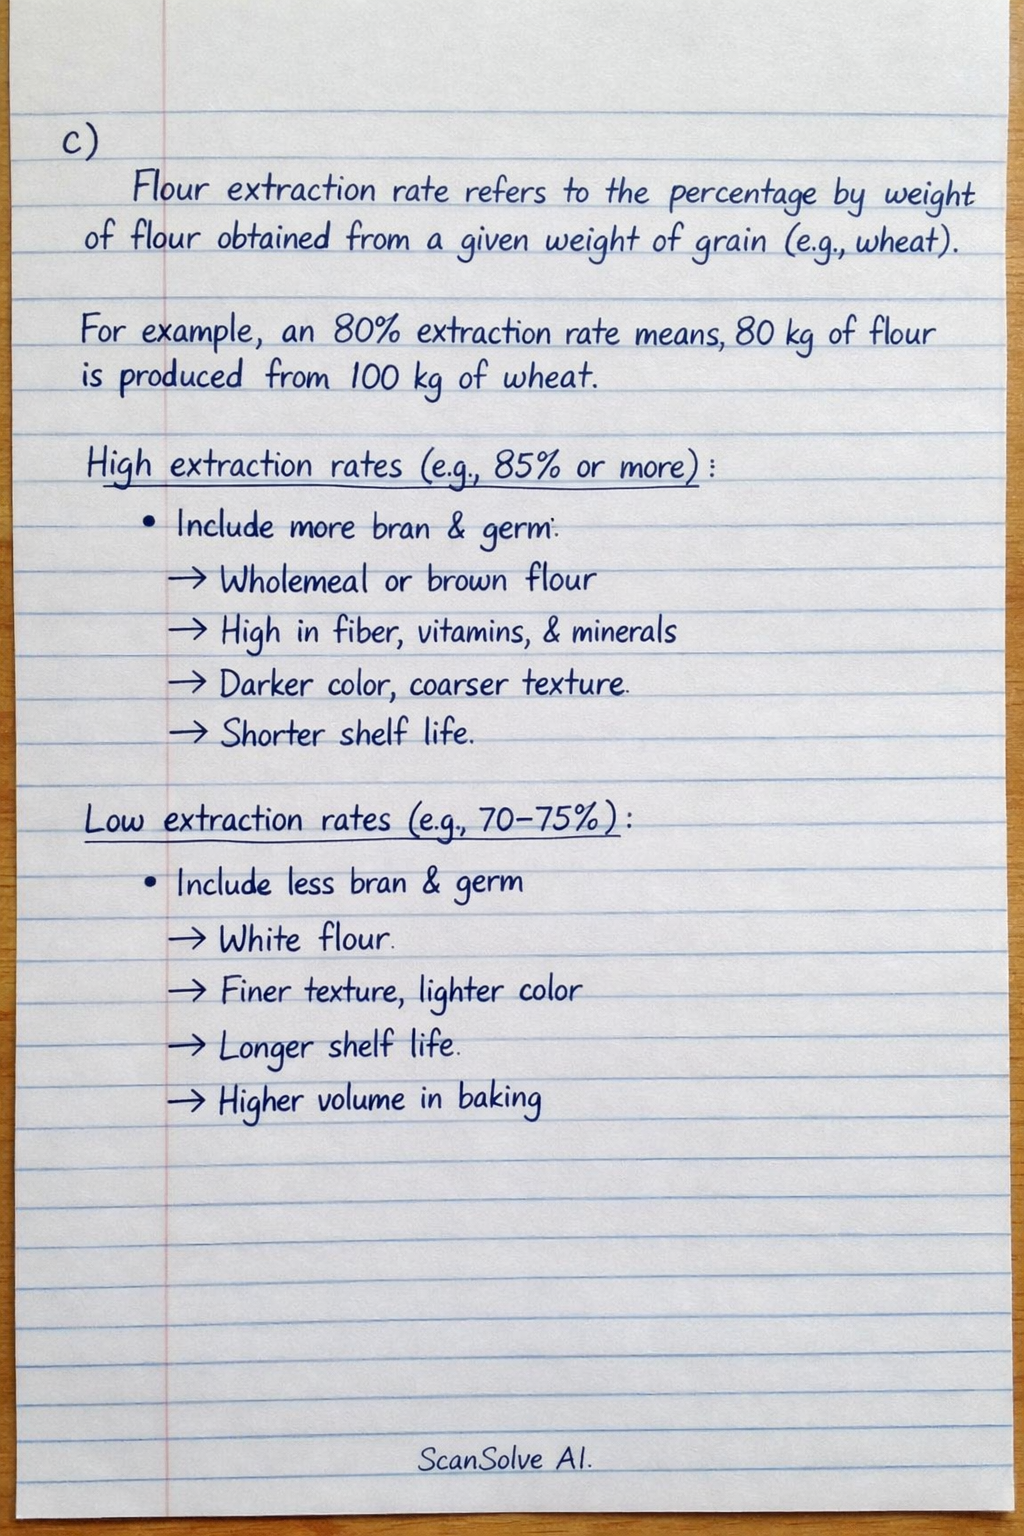 c)
Flour extraction rate refers to the percentage by weight
of flour obtained from a given weight of grain (e.g., wheat).
For example, an 80% extraction rate means, 80 kg of flour
is produced from 100 kg of wheat.
High extraction rates (e.g., 85% or more) :
• Include more bran & germ:
→ Wholemeal or brown flour
→ High in fiber, vitamins, & minerals
→ Darker color, coarser texture.
→ Shorter shelf life.
Low extraction rates (e.g., 70–75%) :
• Include less bran & germ
→ White flour.
→ Finer texture, lighter color
→ Longer shelf life.
→ Higher volume in baking
ScanSolve AI.